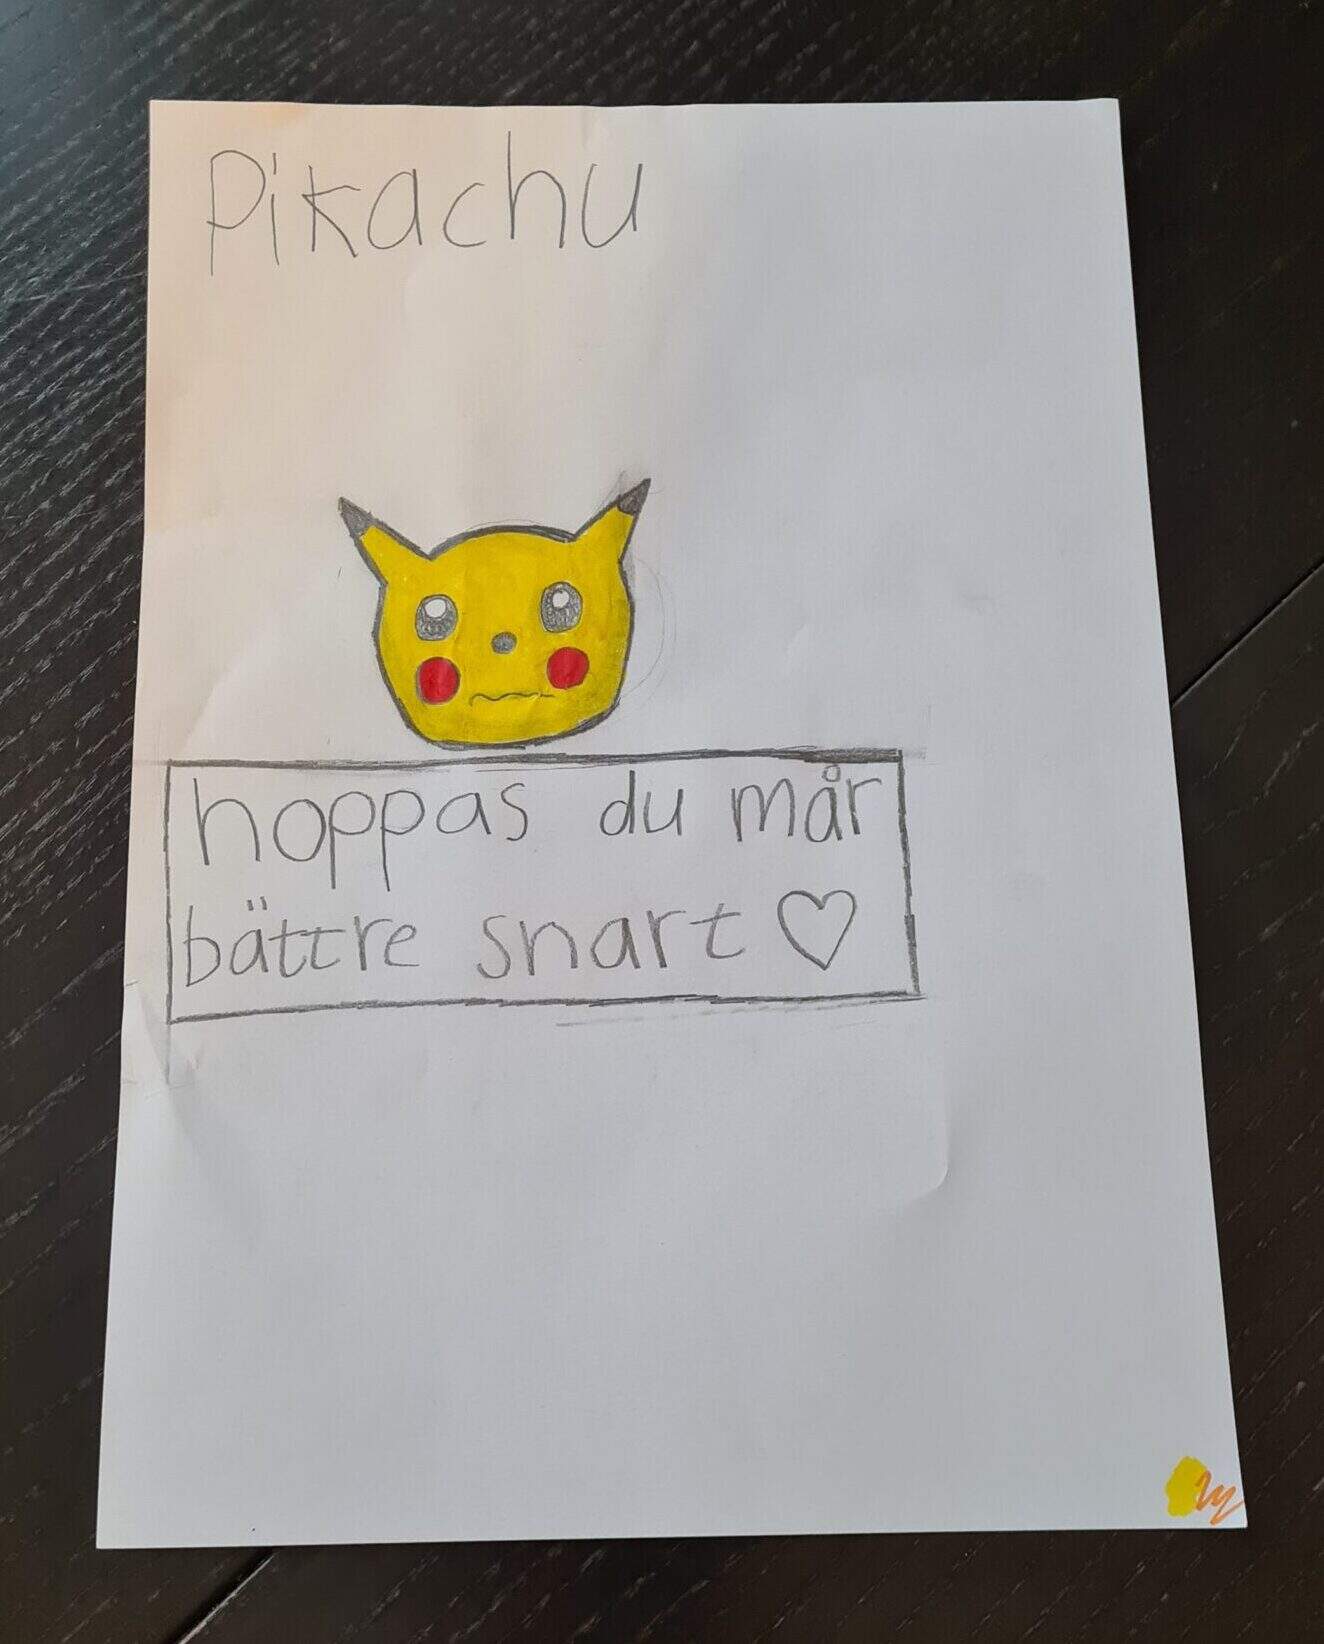 Pikachu
hoppas du mår
bättre snart ♡